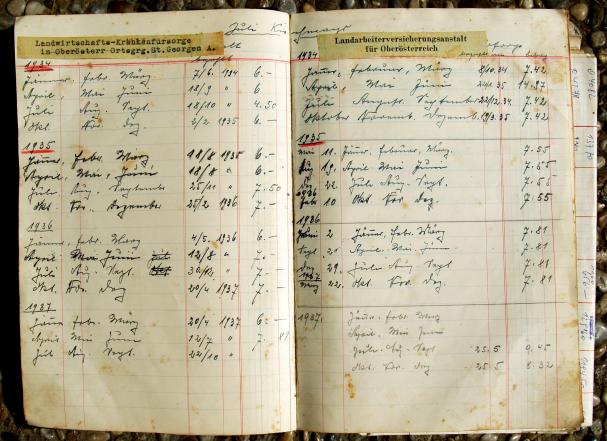 Juli
Landwirtschafts-Krankenfürsorge
in Oberösterr Ortsgrg.St.Georgen A.
1934
Jänner, Febr. März 7/6. 1934 6.-
April, Mai Juni 15/9 " 6
Juli Aug. Sept. 18/10 " 4.50
Okt. Nov. Dez. 2/2 1935 6.-
1935
Jänner, Febr. März 18/8 1935 6.-
April, Mai, Juni 18/8 " 6.-
Juli Aug. September 25/11 " 7.50
Okt. Nov. Dezember 25/2 1936 7.-
1936
Jänner, Febr. März 4/5 1936 6.-
April Mai Juni 12/8 " 7.-
Juli Aug. Sept. " 7.-
Okt. Nov. Dez 20/4 1937 7.-
1937
Jänn Febr. März 20/4 1937 6.-
April Mai Juni 12/7 " 7.
Juli Aug. Sept. 22/10 "
Landarbeiterversicherungsanstalt
für Oberösterreich
1934
Jänner, Februar, März 8/10.34 7.42
April, Mai Juni
Juli August. September 22/12.34 7.42
Oktober Novemb. Dezemb. 19/3.35 7.42
1935
Mai 11. Jänner. Februar, März. 7.55
Aug 19. April Mai Juni 7.55
Dez 22. Juli Aug. Sept. 7.55
1936
Febr 10 Okt Nov Dez. 7.55
1936
Juni 2 Jänner, Febr. März 7.81
Sept 21 April. Mai. Juni. 7.81
Dez 29. Juli Aug Sept 7.81
1937
März 22. Okt. Nov. Dez. 7.81
1937. Jänn. Febr. März
April. Mai Juni
Juli. Aug. Sept 25.5 9.45
Okt. Nov. Dez 25.5 8.32